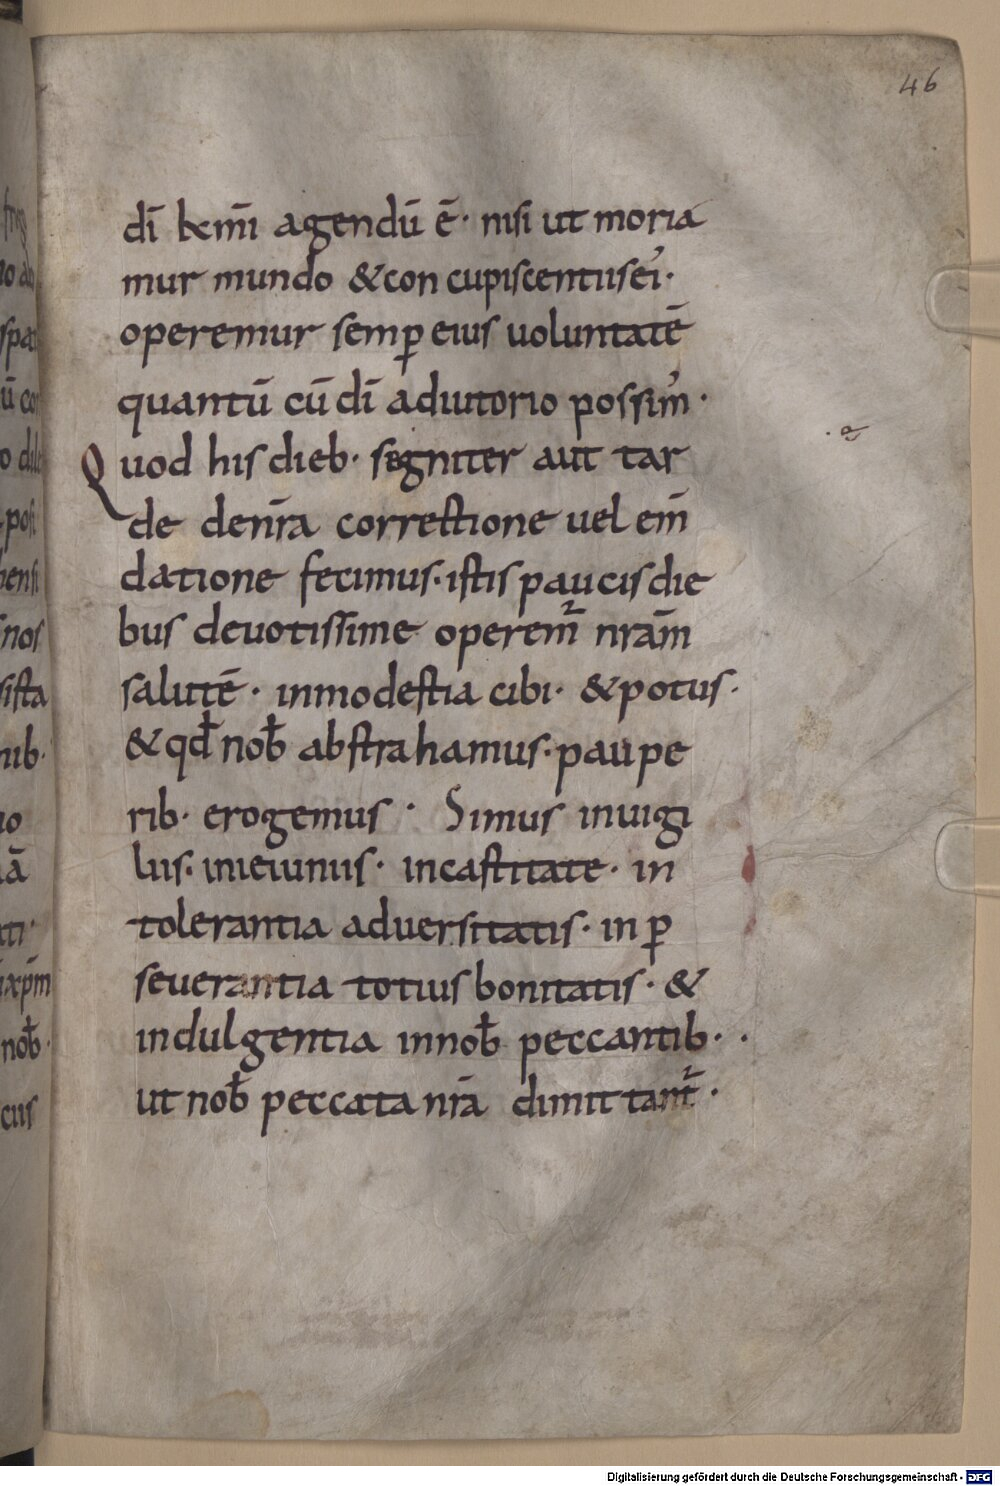 46
dī km̄i agendū ē· nisi ut moria
mur mundo & con cupiscentiis ei᾽·
operemur semꝑ eius uoluntatē
quantū cū dī adiutorio possim᾽·
Quod his dieb· segniter aut tar
de de nr̄a correctione uel em̄
datione fecimus· istis paucis die
bus deuotissime operem̄ nrām
salutē· in modestia cibi· & potus·
& qd̄ nob̄ abstrahamus· paupe
rib· erogemus· Simus in uigi
liis· in ieiuniis· in castitate· in
tolerantia aduersitatis· in ꝑ
seuerantia totius bonitatis· &
indulgentia in nob̄ peccantib··
ut nob̄ peccata nr̄a dimittant᷑·
Digitalisierung gefördert durch die Deutsche Forschungsgemeinschaft - DFG